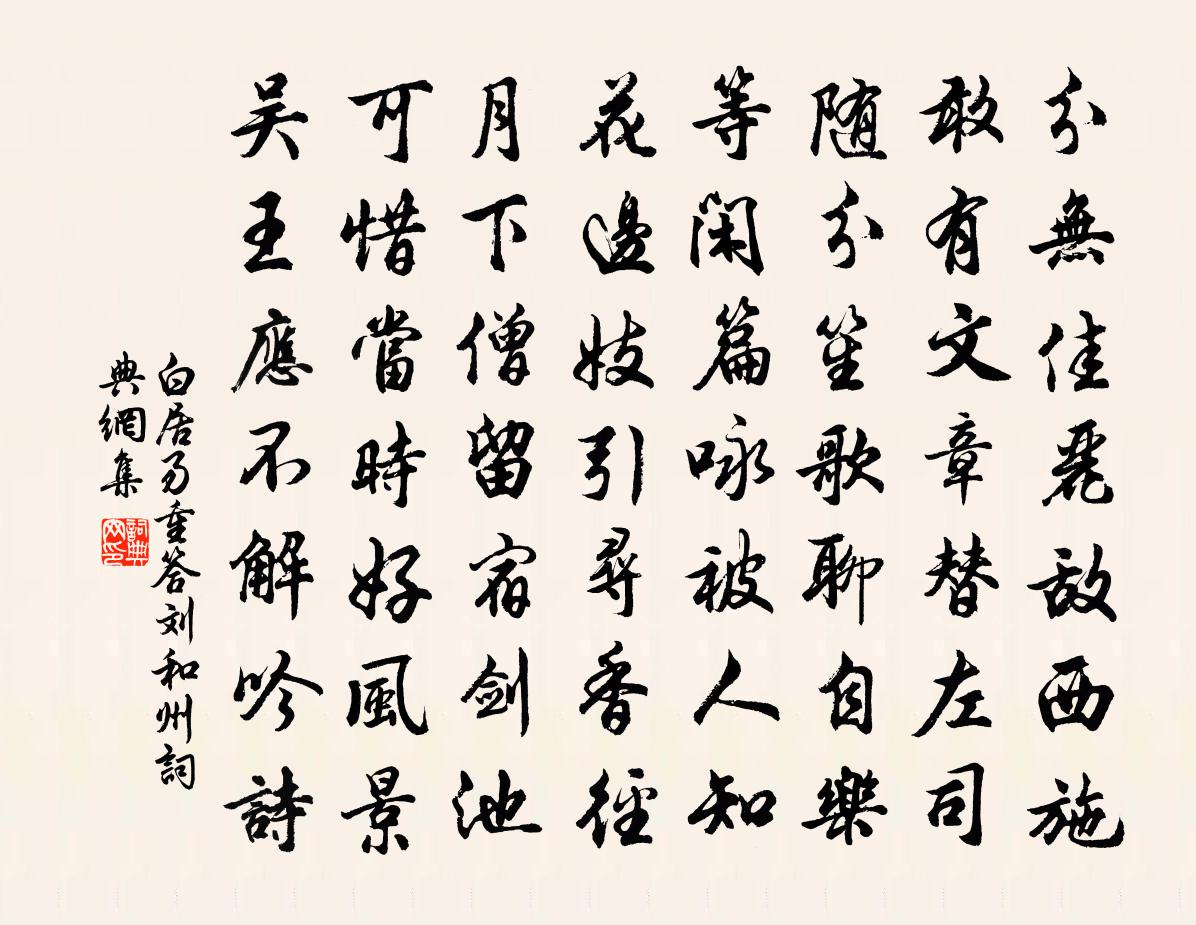 分無佳麗敵西施
敢有文章替左司
随分笙歌聊自樂
等閑篇咏被人知
花邊妓引尋香徑
月下僧留宿劍池
可惜當時好風景
吴王應不解吟詩
白居易重答刘和州詞
典網集
詞典
网印